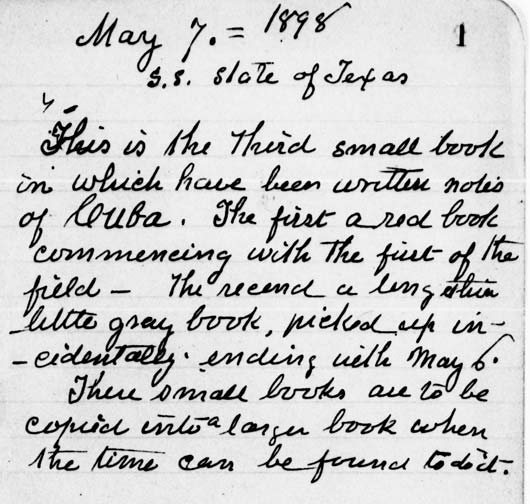 May 7. = 1898
1
S.S. State of Texas
This is the third small book
in which have been written notes
of Cuba. The first a red book
commencing with the first of the
field – The second a long thin
little gray book, picked up in-
-cidentally. ending with May 6.
These small books are to be
copied into a larger book when
the time can be found to do it.